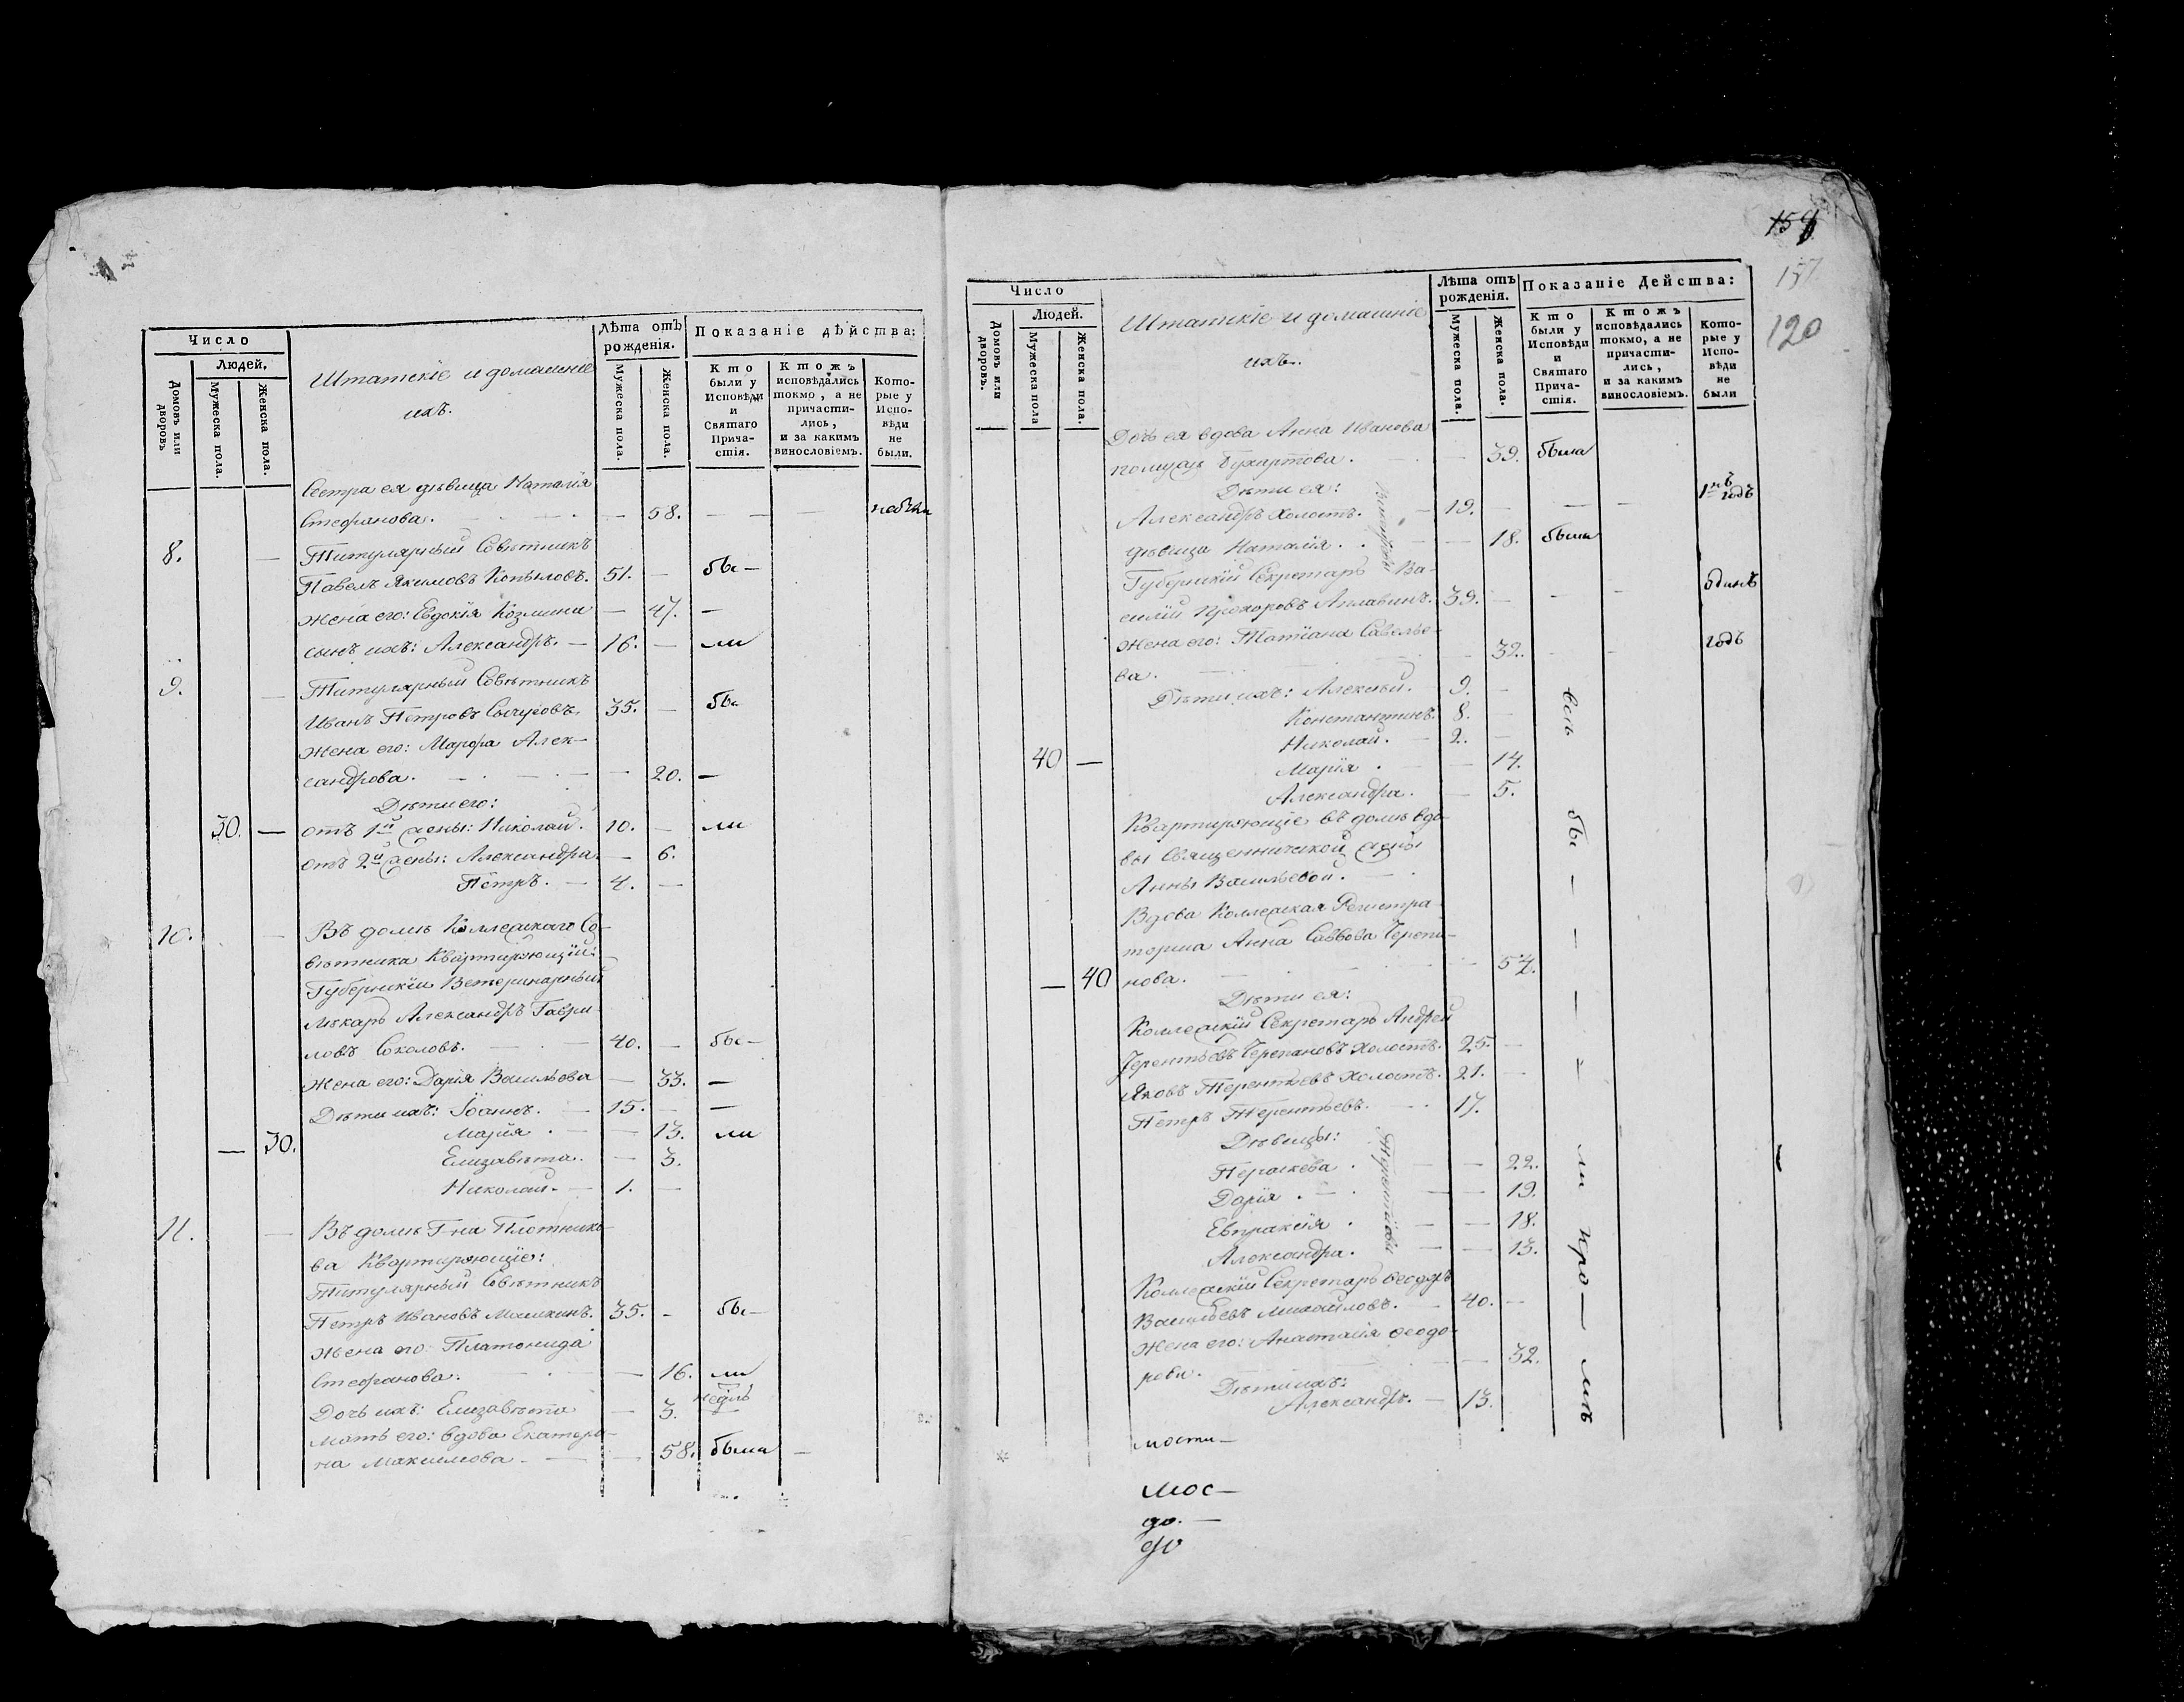 Число
Людей,
Домовъ или дворовъ
Мужеска пола.
Женска пола.
Штатскіе и домашніе
ихъ.
Лѣта отъ рожденія.
Мужеска пола.
Женска пола.
Показаніе дѣйства:
Кто были у Исповѣди и Святаго Причастія.
Ктожъ исповѣдались токмо, а не причастились, и за какимъ винословіемъ.
Которые у Исповѣди не были.
Сестра ея дѣвица Наталія
Стефанова. — 58. — — —
8. — Титулярный Совѣтникъ
Павелъ Якимовъ Копыловъ. 51. — бы—
жена его: Евдокія Козмина — 47. —
сынъ ихъ: Александръ. — 16. — ли
9. — Титулярный Совѣтникъ
Иванъ Петровъ 35. — бы
жена его: Марфа Алек-
сандрова. — 20. —
Дѣти его:
30. — отъ 1й жены: Николай. 10. — ли
отъ 2й жены: Александра. — 6.
Петръ. — 4. —
10. — Въ домѣ Коллежскаго Со-
вѣтника Квартирующій:
Губернскій Ветеринарный
Лѣкарь Александръ Гаври
ловъ Соколовъ. — 40. — бы—
жена его: Дарія Васильева — 33. —
Дѣти ихъ: Іоаннъ. — 15. — —
Марія. — — 13. ли
— 30.
Елизавета. — 3.
Николай. — 1. —
11. — Въ домѣ Г-на Плотнико-
ва Квартирующіе:
Титулярный Совѣтникъ
Петръ Ивановъ 35. — бы—
жена его: Платонида
Стефанова. — 16. ли
Дочь ихъ: Елизавета — 3.
мать его: вдова Екатери-
на Максимова — — 58. была —
158
157
120
Число
Людей.
Домовъ или дворовъ.
Мужеска пола
Женска пола.
Штатскіе и домашніе
ихъ.
Лѣта отъ рожденія.
Мужеска пола.
Женска пола.
Показаніе Дейсшва:
Кто были у Исповѣди и Святаго Причастія.
Ктожъ исповѣдались токмо, а не причастились, и за какимъ винословіемъ.
Которые у Исповѣди не были
Дочь ея вдова Анна Иванова
по мужѣ — 39. была
Дѣти ея:
Александръ холостъ. — 19. — — — годъ
дѣвица Наталія. — — 18. была
Губернскій Секретарь Ва-
силій Прохоровъ 39. — — — одинъ
жена его: Татіана Савелье-
ва. — 32. — — годъ
Дѣти ихъ: Алексѣй. 9. —
Константинъ. 8. —
Николай. — 2. —
40 — Марія. — — 14.
Александра. — 5.
Квартирующіе въ домѣ вдо-
вы Священнической жены
Анны Васильевой. —
Вдова Коллежская Регистра-
торша Анна Саввова Черепа-
— 40 нова. — 57.
Дѣти ея:
Коллежскій Секретарь Андрей
Терентьевъ Черепановъ холостъ. 25. —
Яковъ Терентьевъ холостъ. 21. —
Петръ Терентьевъ. — 17.
Дѣвицы:
Параскева. — — 22.
Дарія. — — — 19.
Евпраксія. — — 18.
Александра. — — 13.
Коллежскій Секретарь Ѳеодоръ
Васильевъ Михайловъ. — 40. —
жена его: Анастасія Ѳеодо-
рова. — 32.
Дѣти ихъ:
Александръ. — 13.
весь
бы — — — ли
мости—
мос—
до. —
до